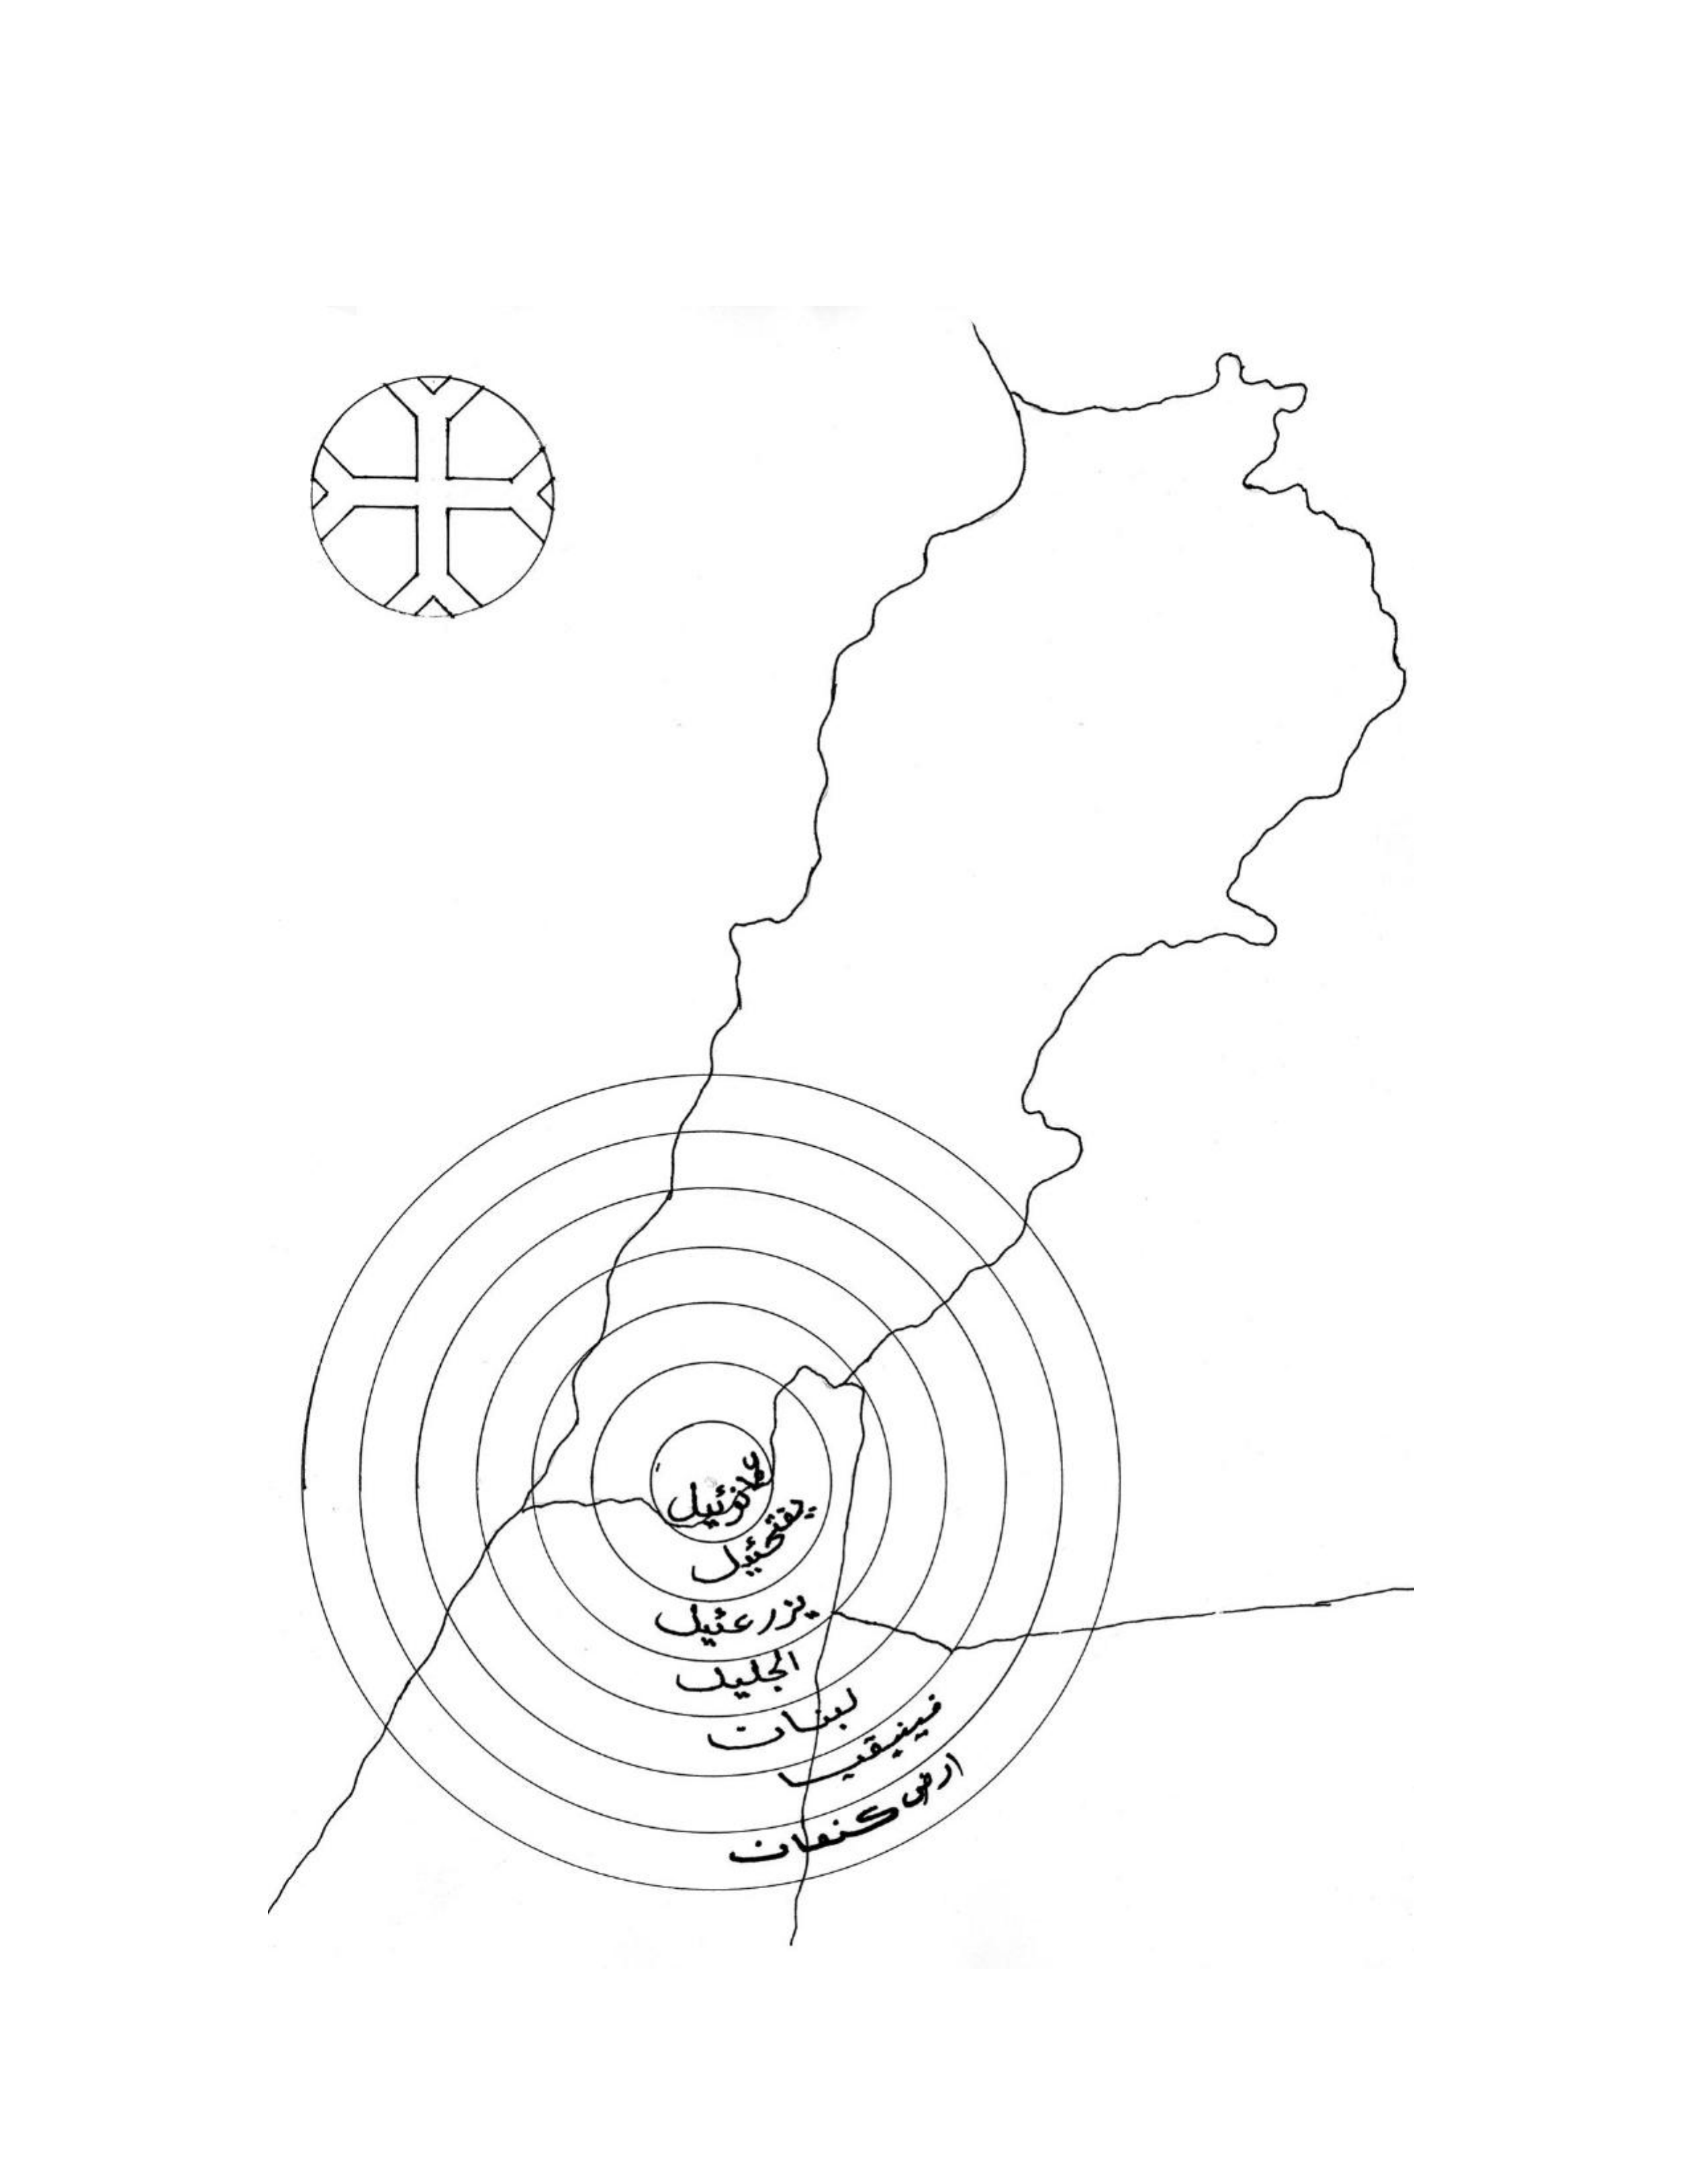 عمانوئيل
يفتحئيل
يزرعئيل
الجليل
لبنان
فينيقيا
ارض كنعان